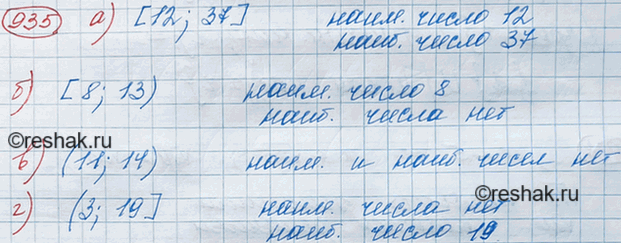 935 а) [12; 37] наим. число 12
наиб. число 37
б) [8; 13) наим. число 8
наиб. числа нет
©reshak.ru
в) (11; 14) наим. и наиб. чисел нет
©reshak.ru
г) (3; 19] наим. числа нет
наиб. число 19